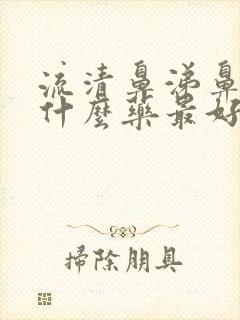 流清鼻涕鼻
什麼藥最好
掃除朋具